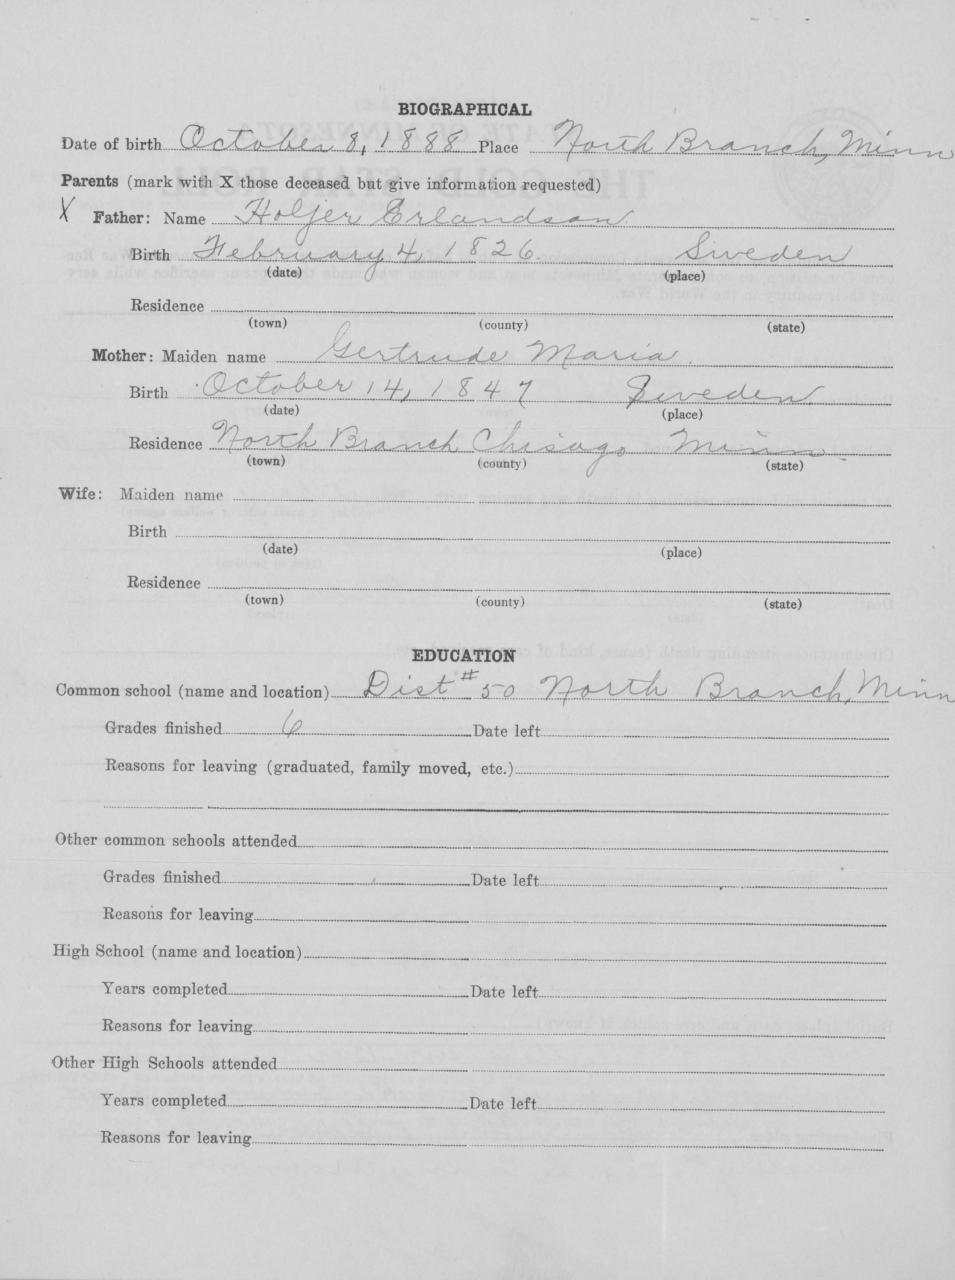 BIOGRAPHICAL
Date of birth October 8, 1888 Place North Branch, Minn
Parents (mark with X those deceased but give information requested)
X Father: Name Holjer Erlandson
Birth February 4, 1826. Sweden
(date) (place)
Residence
(town) (county) (state)
Mother: Maiden name Gertrude Maria.
Birth October 14, 1847 Sweden
(date) (place)
Residence North Branch Chisago Minn
(town) (county) (state)
Wife: Maiden name
Birth
(date) (place)
Residence
(town) (county) (state)
EDUCATION
Common school (name and location) Dist # 50 North Branch, Minn
Grades finished 6 Date left
Reasons for leaving (graduated, family moved, etc.)
Other common schools attended
Grades finished Date left
Reasons for leaving
High School (name and location)
Years completed Date left
Reasons for leaving
Other High Schools attended
Years completed Date left
Reasons for leaving